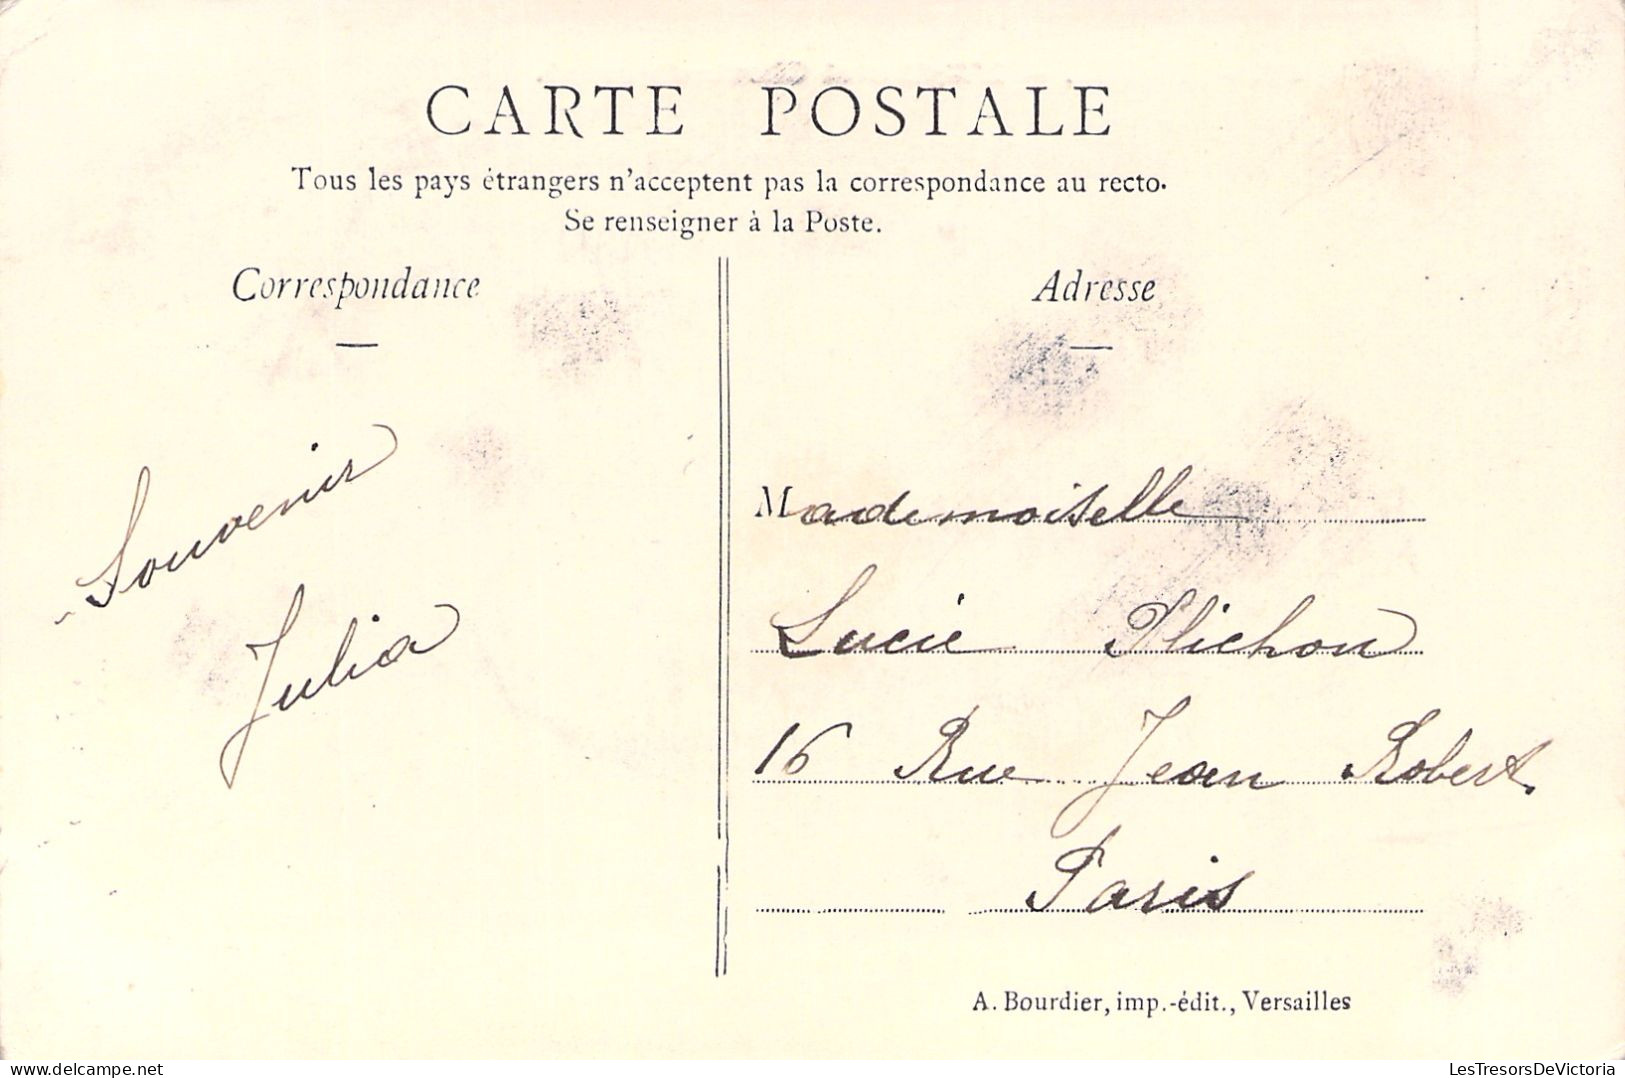 CARTE POSTALE
Tous les pays étrangers n'acceptent pas la correspondance au recto.
Se renseigner à la Poste.
Correspondance
Souvenir
Julia
Adresse
Mademoiselle
Lucie Plichon
16 Rue Jean Robert
Paris
A. Bourdier, imp.-édit., Versailles
delcampe.net
LesTresorsDeVictoria